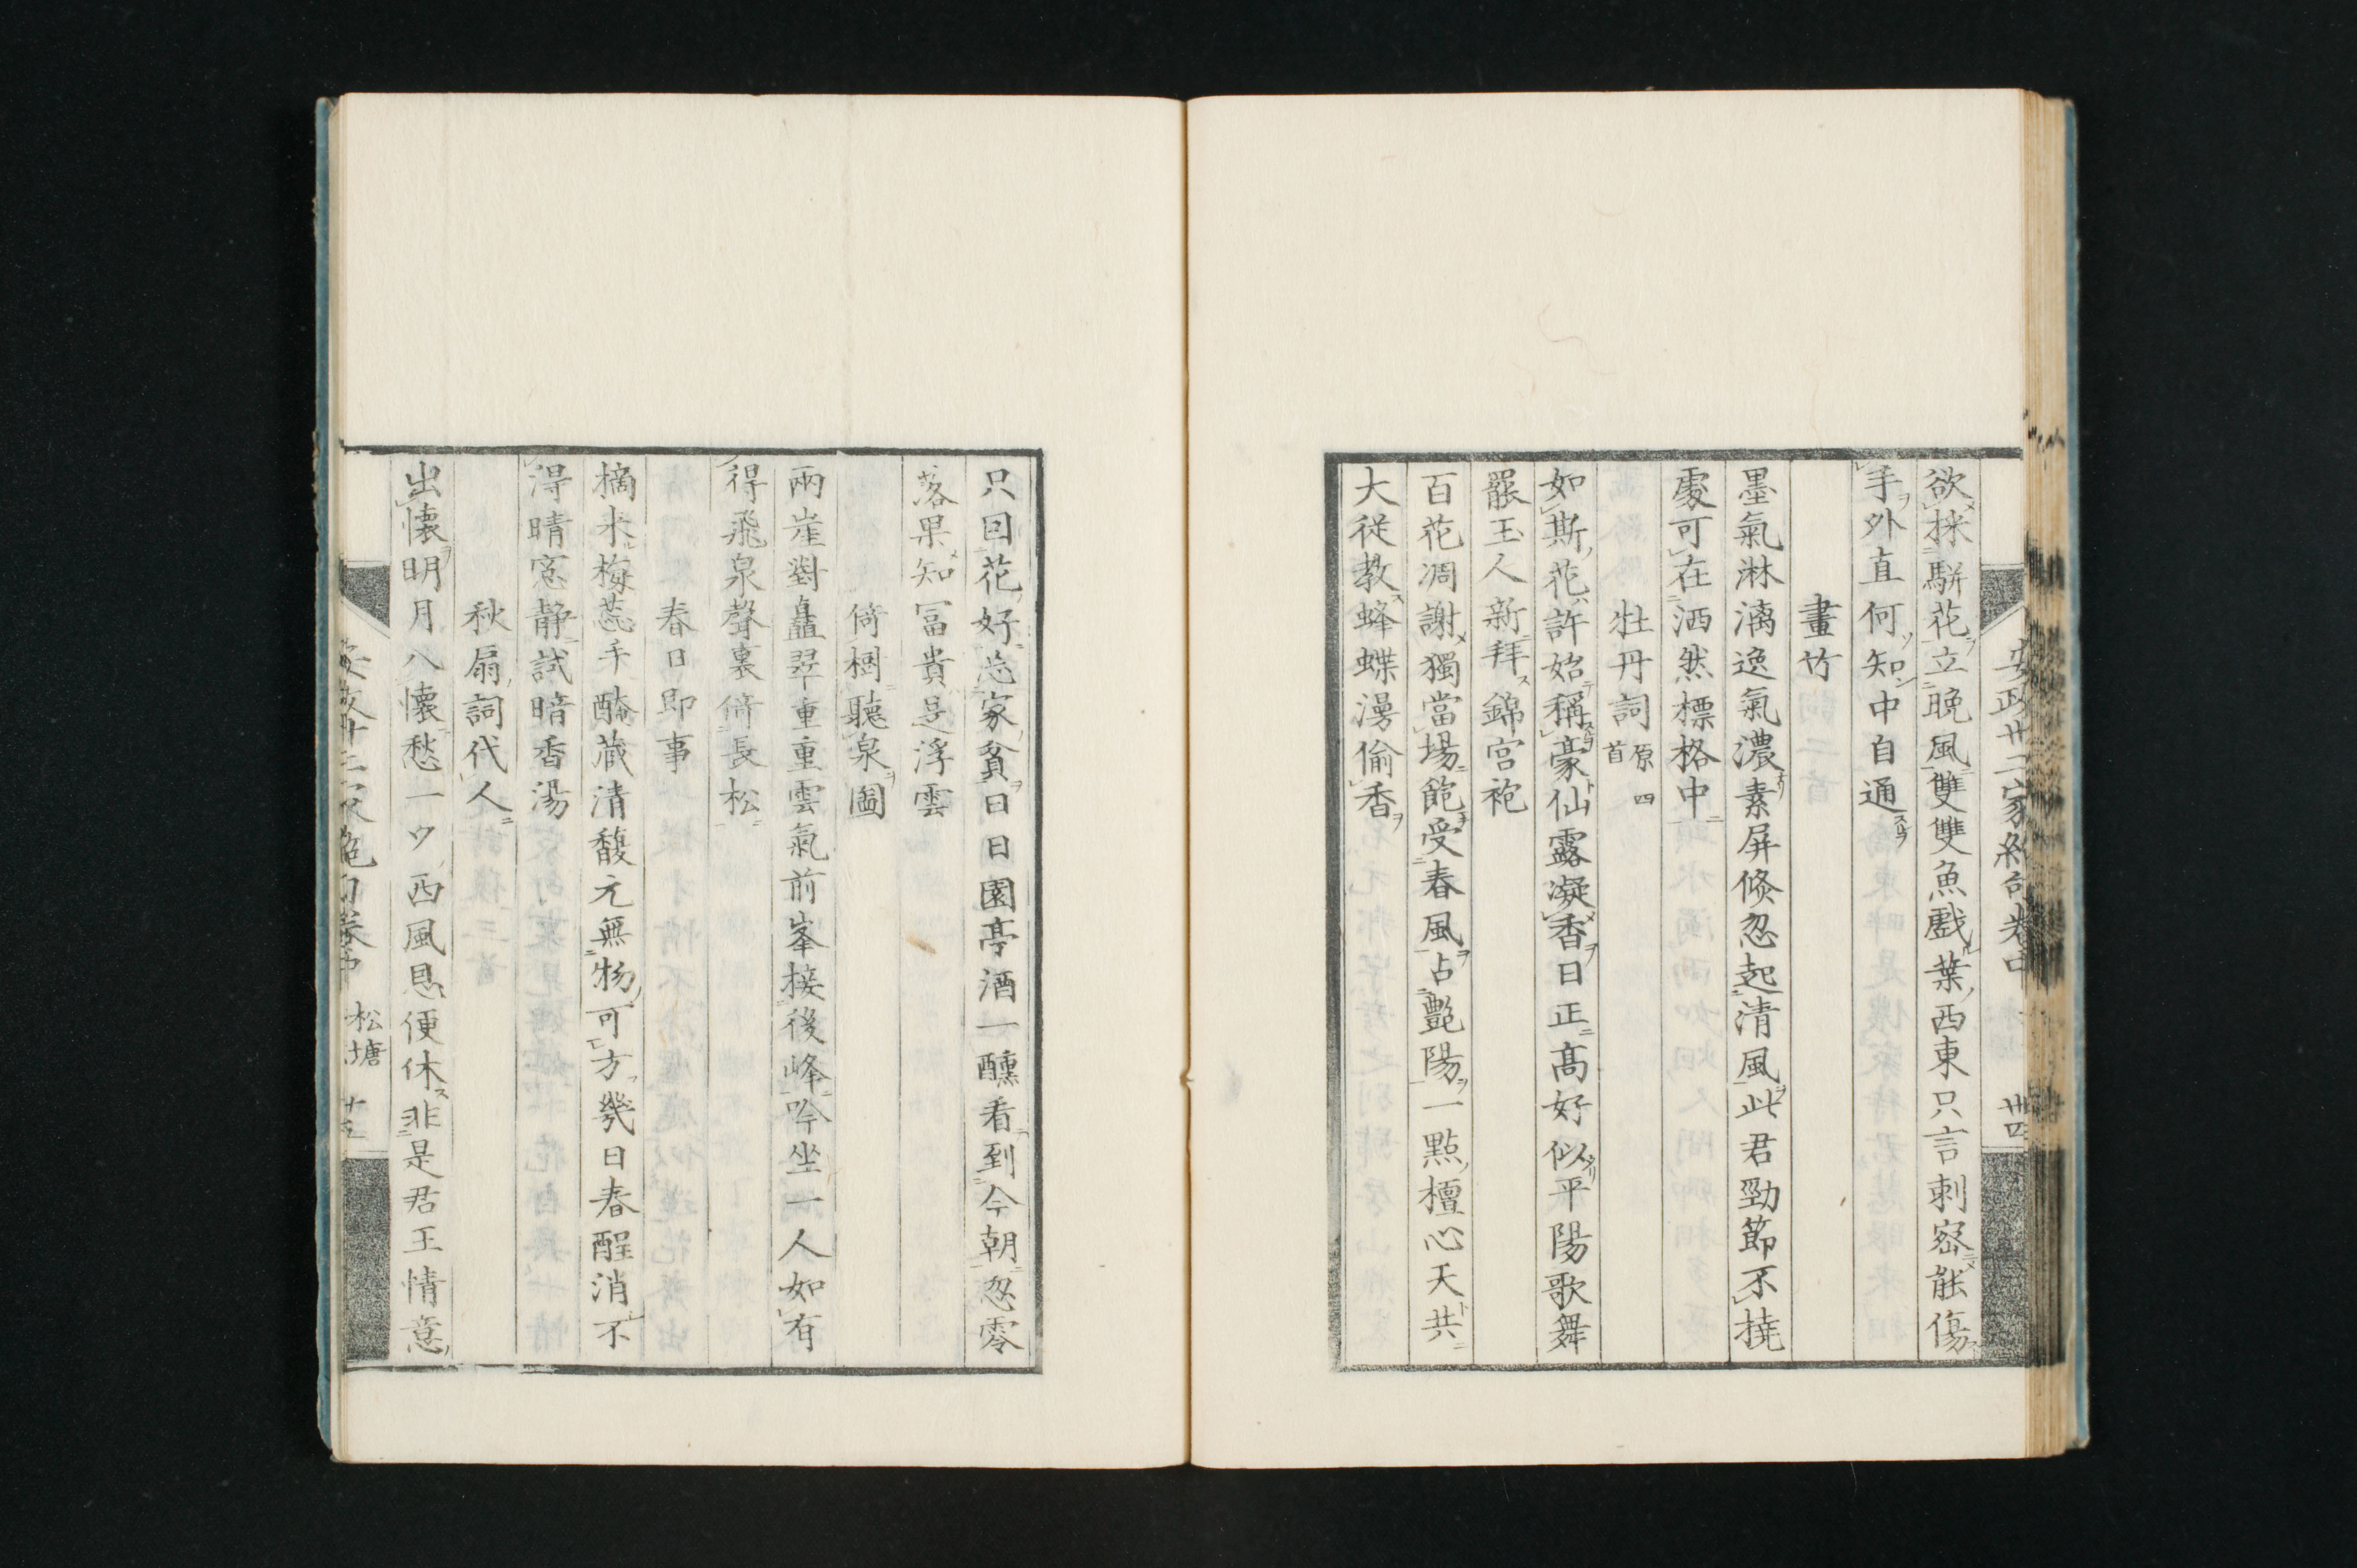 安政卅二家絶句卷中 卅四
欲採駢花立晩風雙雙魚戲葉西東只言刺密能傷
手外直何知中自通
畫竹
墨氣淋漓逸氣濃素屏倐忽起清風此君勁節不撓
處可在洒然標格中
牡丹詞原四首
如斯花許始稱豪仙露凝香日正高好似平陽歌舞
罷玉人新拜錦宮袍
百花凋謝獨當場飽受春風占艷陽一點檀心天共
大従教蜂蝶漫偷香
只因花好忘家貧日日園亭酒一醺看到今朝忽零
落果知冨貴是浮雲
倚樹聽泉圖
兩崖對矗翠重重雲氣前峯接後峰吟坐一人如有
得飛泉聲裏倚長松
春日即事
摘來梅蕊手醃藏清馥元無物可方幾日春酲消不
得晴窓静試暗香湯
秋扇詞代人
出懷明月入懷愁一夕西風恩便休非是君王情意
安政卅二家絶句卷中 松塘 卅五